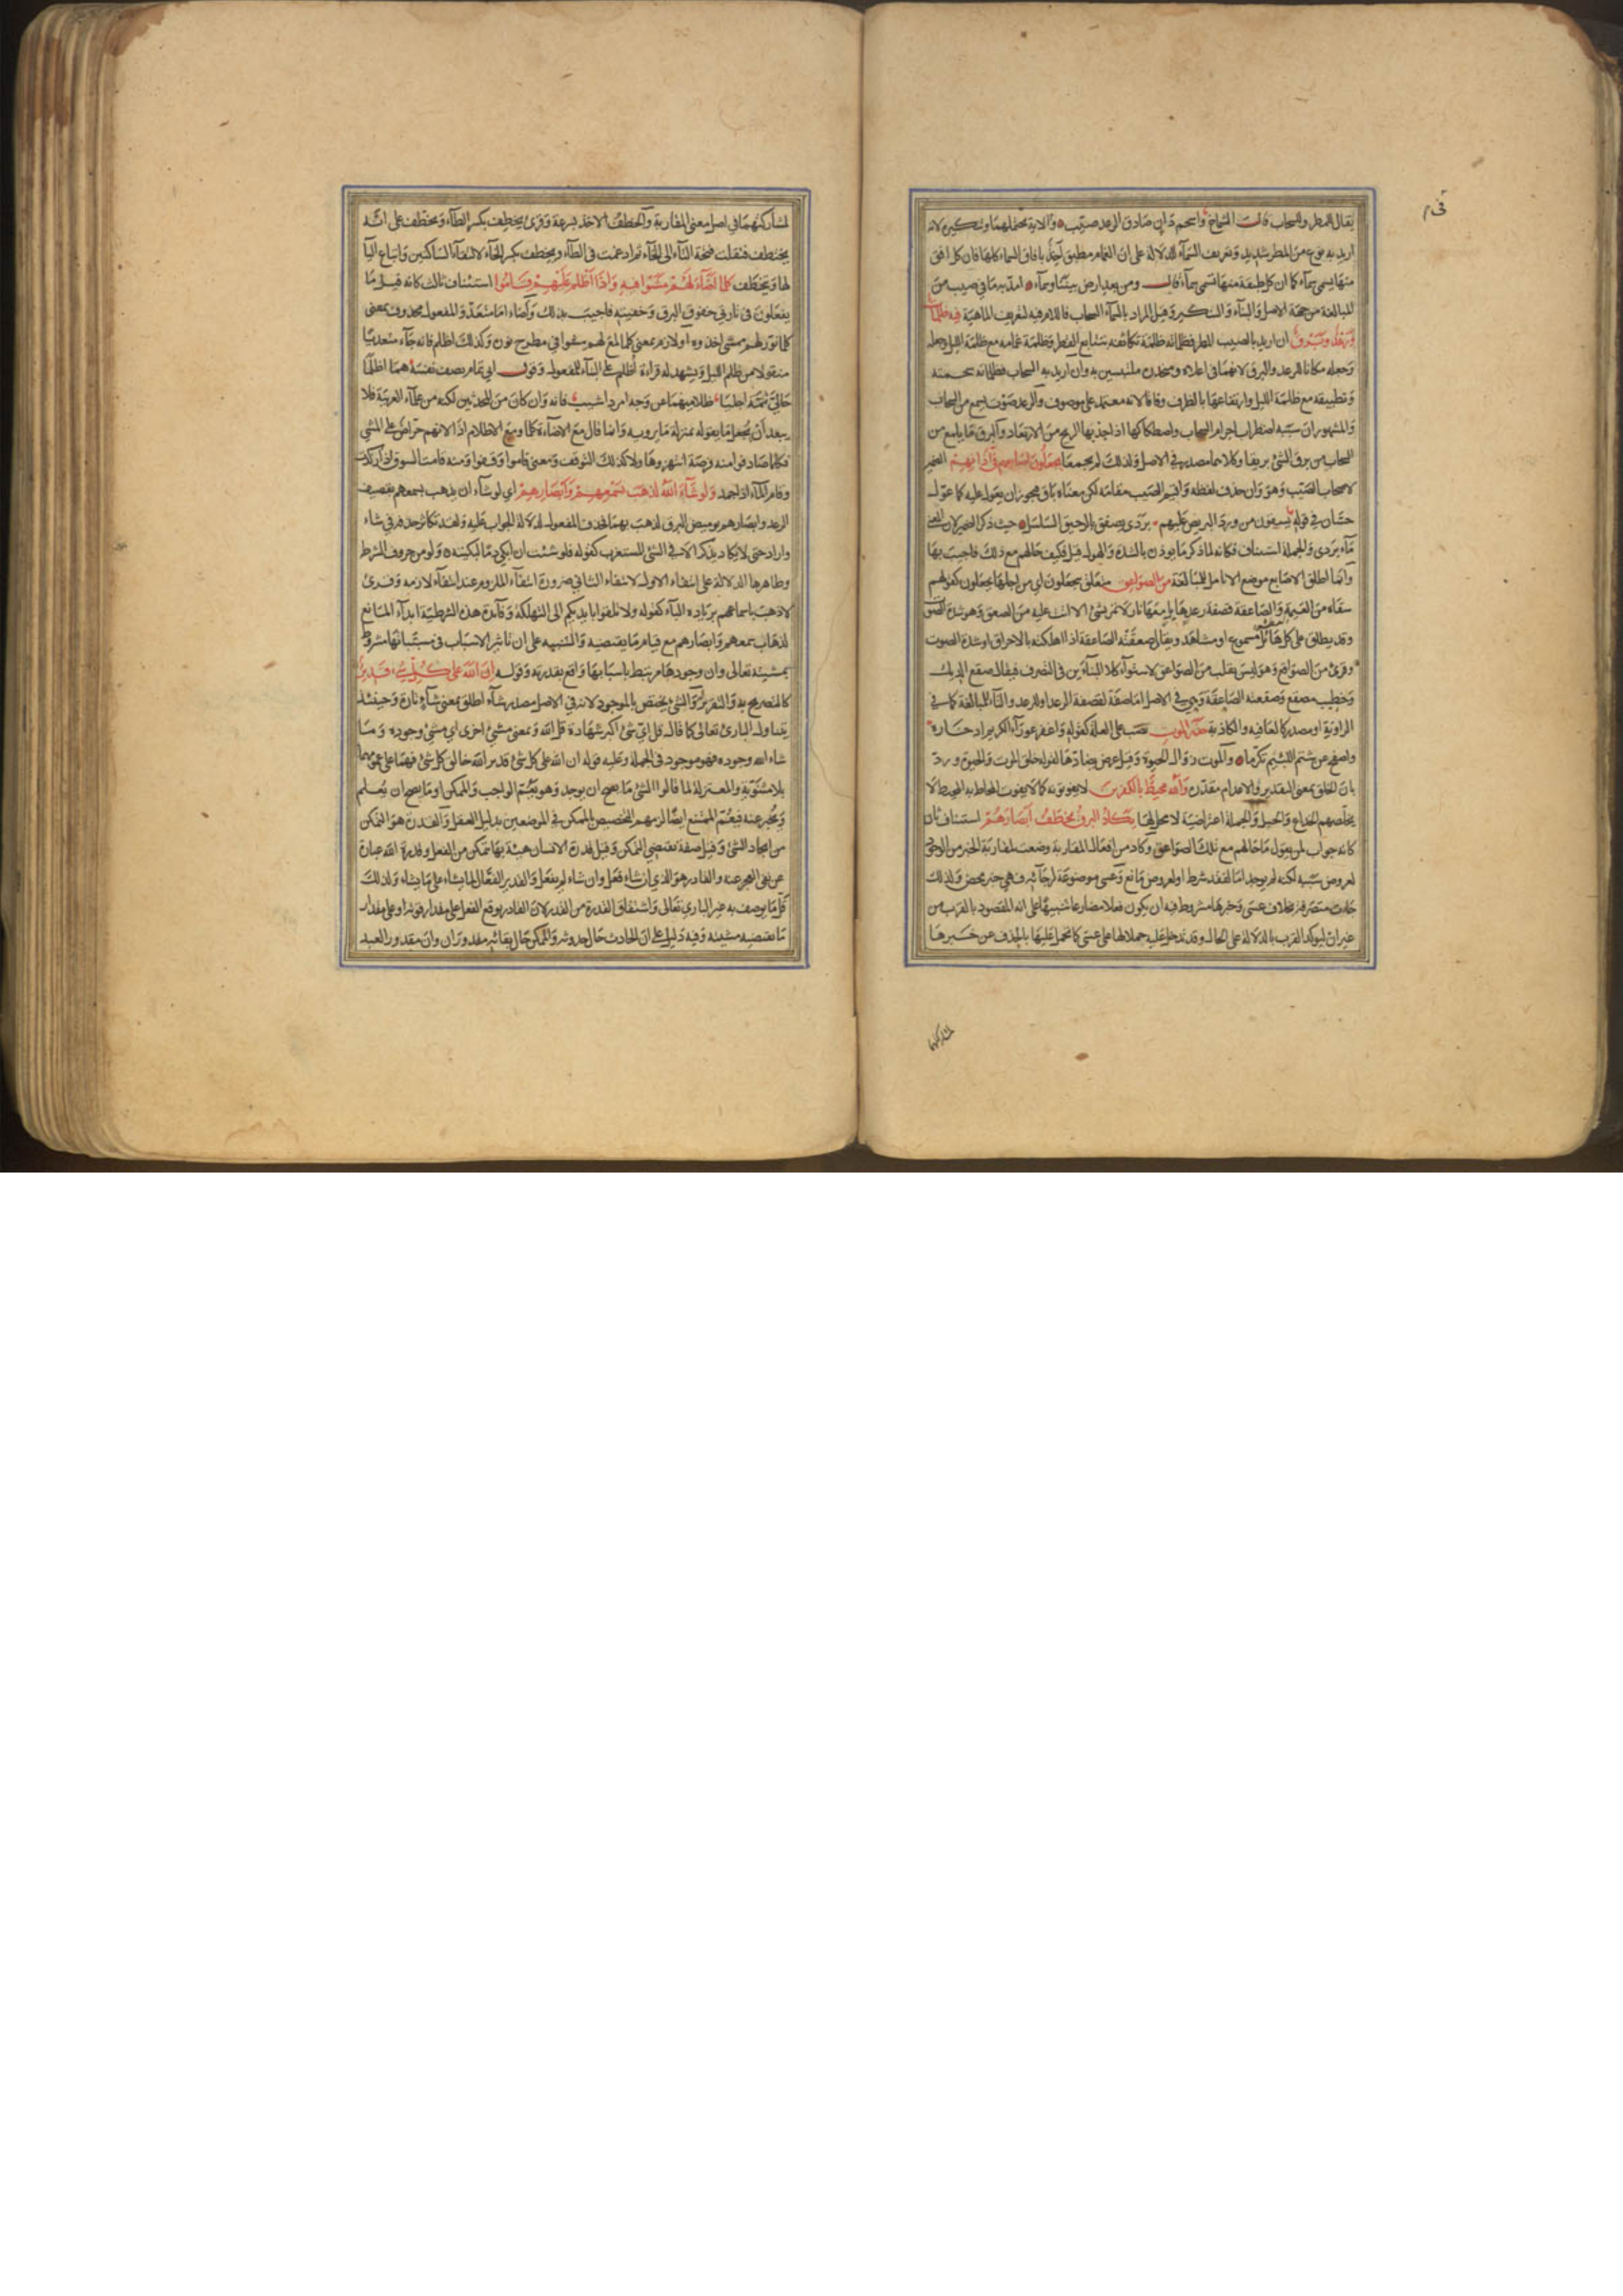 في م
يقال للمطر وللسحاب قالت الشماخ واسحم دان صادق الرعد صيّب والآية تحتملهما وتنكيره لانه
اريد به نوع من المطر شديد وتعريف السمآء للدلالة على ان الغمام مطبق آخذ بافاق السماء كلها فان كل افق
منها يسمى سمآء كما ان كل طبقة منها تسمى سمآء قال ومن بعد ارض بيننا وسمآء امد به ما في صيب من
المبالغة من جهة الاصل والبنآء والتنكير وقيل المراد بالسمآء السحاب فاللام فيه لتعريف الماهية فيه ظلمات
ورعد وبرق ان اريد بالصيب المطر فظلماته ظلمة تكاثفه بتتابع القطر وظلمة غمامه مع ظلمة الليل وجعله
وجعله مكانا للرعد والبرق لانهما في اعلاه ومنحدره ملتبسين به وان اريد به السحاب فظلماته سحمته
وتطبيقه مع ظلمة الليل وارتفاعها بالظرف وفاقا لانه معتمد على موصوف والرعد صوت يسمع من السحاب
والمشهور ان سببه اضطراب اجرام السحاب واصطكاكها اذا حدتها الريح من الارتعاد والبرق ما يلمع من
السحاب من برق الشئ بريقا وكلاهما مصدر في الاصل ولذلك لم يجمعا يجعلون اصابعهم في آذانهم الضمير
لاصحاب الصيب وهو وان حذف لفظه واقيم الصيب مقامه لكن معناه باق فيجوز ان يعول عليه كما عول
حسّان في قوله يسقون من ورد البريص عليهم بردى يصفق بالرحيق السلسل حيث ذكر الضمير لان المعنى
مآء بردى والجملة استيناف فكانه لما ذكر ما يوذن بالشدة والهول قيل فكيف حالهم مع ذلك فاجيب بها
وانما اطلق الاصابع موضع الانامل للمبالغة من الصواعق متعلق بيجعلون اى من اجلها يجعلون كقولهم
سقاه من العيمة والصاعقة قصفة رعد هائل معها نار لا تمر بشئ الا اتت عليه من الصعق وهو شدة الصوت
وقد يطلق على كل هائل مسموع او مشاهد ويقال صعقته الصاعقة اذا اهلكته بالاحراق او شدة الصوت
وقرئ من الصواقع وهو ليس بقلب من الصواعق لاستوآء كلا البنآءين في التصرف فيقال صقع الديك
وخطيب مصقع وصقعته الصاعقة وهي في الاصل اما صفة لقصفة الرعد او للرعد والتآء للمبالغة كما في
الراوية او مصدر كالعافية والكاذبة حذر الموت نصب على العلة كقوله واغفر عورآء الكريم ادخاره
واصفح عن شتم اللئيم تكرما والموت زوال الحيوة وقيل عرض يضادها لقوله خلق الموت والحيوة ورد
بان الخلق بمعنى التقدير والاعدام مقدرة والله محيط بالكفرين لا يفوتونه كما لا يفوت المحاط به المحيط لا
يخلصهم الخداع والحيل والجملة اعتراضية لا محل لها يكاد البرق يخطف ابصارهم استيناف ثان
كانه جواب لمن يقول ما حالهم مع تلك الصواعق وكاد من افعال المقاربة وضعت لمقاربة الخبر من الوجود
لعروض سببه لكنه لم يوجد اما لفقد شرط او لعروض مانع وعسى موضوعة لرجآئه فهي خبر محض ولذلك
جاءت متصرفة بخلاف عسى وخبرها مشروط فيه ان يكون فعلا مضارعا تنبيها على انه المقصود بالقرب من
غير ان ليوكد القرب بالدلالة على الحال وقد تدخل عليه حملا لها على عسى كما تحمل عليها بالحذف عن خبرها
لمشاركتهما
لمشاركتهما في اصل معنى المقاربة والخطف الاخذ بسرعة وقرئ يخطف بكسر الطآء ويخطف على انه
يختطف فنقلت فتحة التآء الى الخآء ثم ادغمت في الطآء ويخطف بكسر الخآء لالتقآء الساكنين واتباع اليآ
لها ويتخطف كلما اضآء لهم مشوا فيه واذا اظلم عليهم قاموا استيناف ثالث كانه قيل ما
يفعلون في تارتي خفوق البرق وخفيته فاجيب بذلك واضاء اما متعد والمفعول محذوف بمعنى
كلما نوّر لهم ممشى اخذوه او لازم بمعنى كلما لمع لهم مشوا في مطرح نوره وكذلك اظلم فانه جآء متعديا
منقولا من ظلم الليل ويشهد له قراءة اظلم على البنآء للمفعول وقول ابي تمام يصف نفسه هما اظلما
حاليّ ثمّت اجليا ظلاميهما عن وجه امرد اشيب فانه وان كان من المحدثين لكنه من علمآء العربية فلا
يبعد ان يجعل ما يقوله بمنزلة ما يرويه وانما قال مع الاضآءة كلما ومع الاظلام اذا لانهم حراص على المشي
فكلما صادفوا منه فرصة انتهزوها ولا كذلك التوقف ومعنى قاموا وقفوا ومنه قامت السوق اذا ركدت
وقام المآء اذا جمد ولو شآء الله لذهب بسمعهم وابصارهم اي لو شآء ان يذهب بسمعهم بقصيف
الرعد وابصارهم بوميض البرق لذهب بهما فحذف المفعول لدلالة الجواب عليه ولقد تكاثر حذفه في شاء
واراد حتى لا يكاد يذكر الا في الشئ المستغرب كقوله فلو شئت ان ابكي دما لبكيته ولو من حروف الشرط
وظاهرها الدلالة على انتفاء الاول لانتفاء الثاني ضرورة انتفآء الملزوم عند انتفآء لازمه وقرئ
لاذهب باسماعهم بزيادة البآء كقوله ولا تلقوا بايديكم الى التهلكة وفائدة هذه الشرطية ابدآء المانع
لذهاب سمعهم وابصارهم مع قيام ما يقتضيه والتنبيه على ان تاثير الاسباب في مسبباتها مشروط
بمشيئته تعالى وان وجودها مرتبط باسبابها واقع بقدرته وقوله ان الله على كل شئ قدير
كالتصريح به والتقرير له والشئ يختص بالموجود لانه في الاصل مصدر شآء اطلق بمعنى شآء تارة وحينئذ
يتناول البارئ تعالى كما قال قل اي شئ اكبر شهادة قل الله وبمعنى مشئ اخرى اي مشئ وجوده وما
شاء الله وجوده فهو موجود في الجملة وعليه قوله ان الله على كل شئ قدير الله خالق كل شئ فهما على عمومهما
بلا مثنوية والمعتزلة لما قالوا الشئ ما يصح ان يوجد وهو يعم الواجب والممكن او ما يصح ان يعلم
ويخبر عنه فيعم الممتنع ايضا لزمهم التخصيص بالممكن في الموضعين بدليل العقل والقدرة هو التمكن
من ايجاد الشئ وقيل صفة تقتضي التمكن وقيل قدرة الانسان هيئة بها يتمكن من الفعل وقدرة الله عبارة
عن نفى العجز عنه والقادر هو الذي ان شاء فعل وان شاء لم يفعل والقدير الفعال لما يشاء على ما يشاء ولذلك
قلّ ما يوصف به غير الباري تعالى واشتقاق القدرة من القدر لان القادر يوقع الفعل على مقدار قوته او على مقدار
ما يقتضيه مشيئته وفيه دليل على ان الحادث حال حدوثه والممكن حال بقائه مقدوران وان مقدور العبد